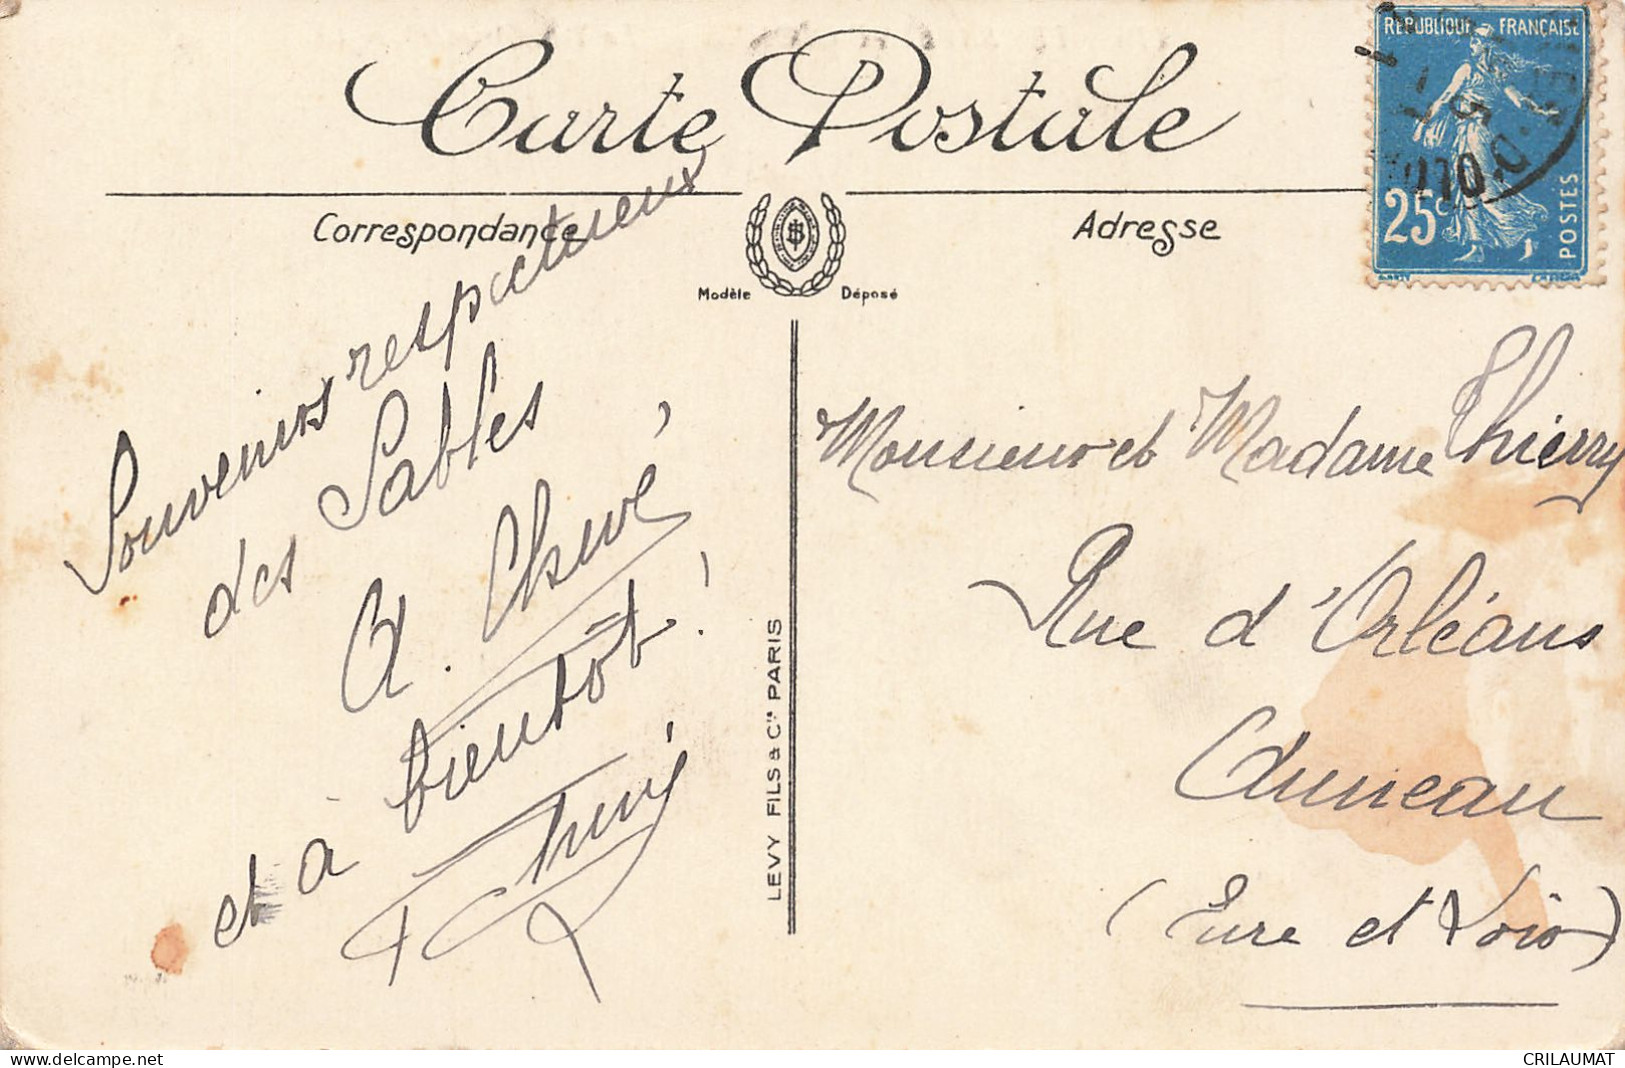 Carte Postale
RÉPUBLIQUE FRANÇAISE
25c
POSTES
Correspondance
Adresse
Modèle Déposé
Souvenirs respectueux
des Sables
et à bientôt!
LEVY FILS & Cie PARIS
Monsieur et Madame Thierry
Rue d'Orléans
Auneau
(Eure et Loir)
CRILAUMAT